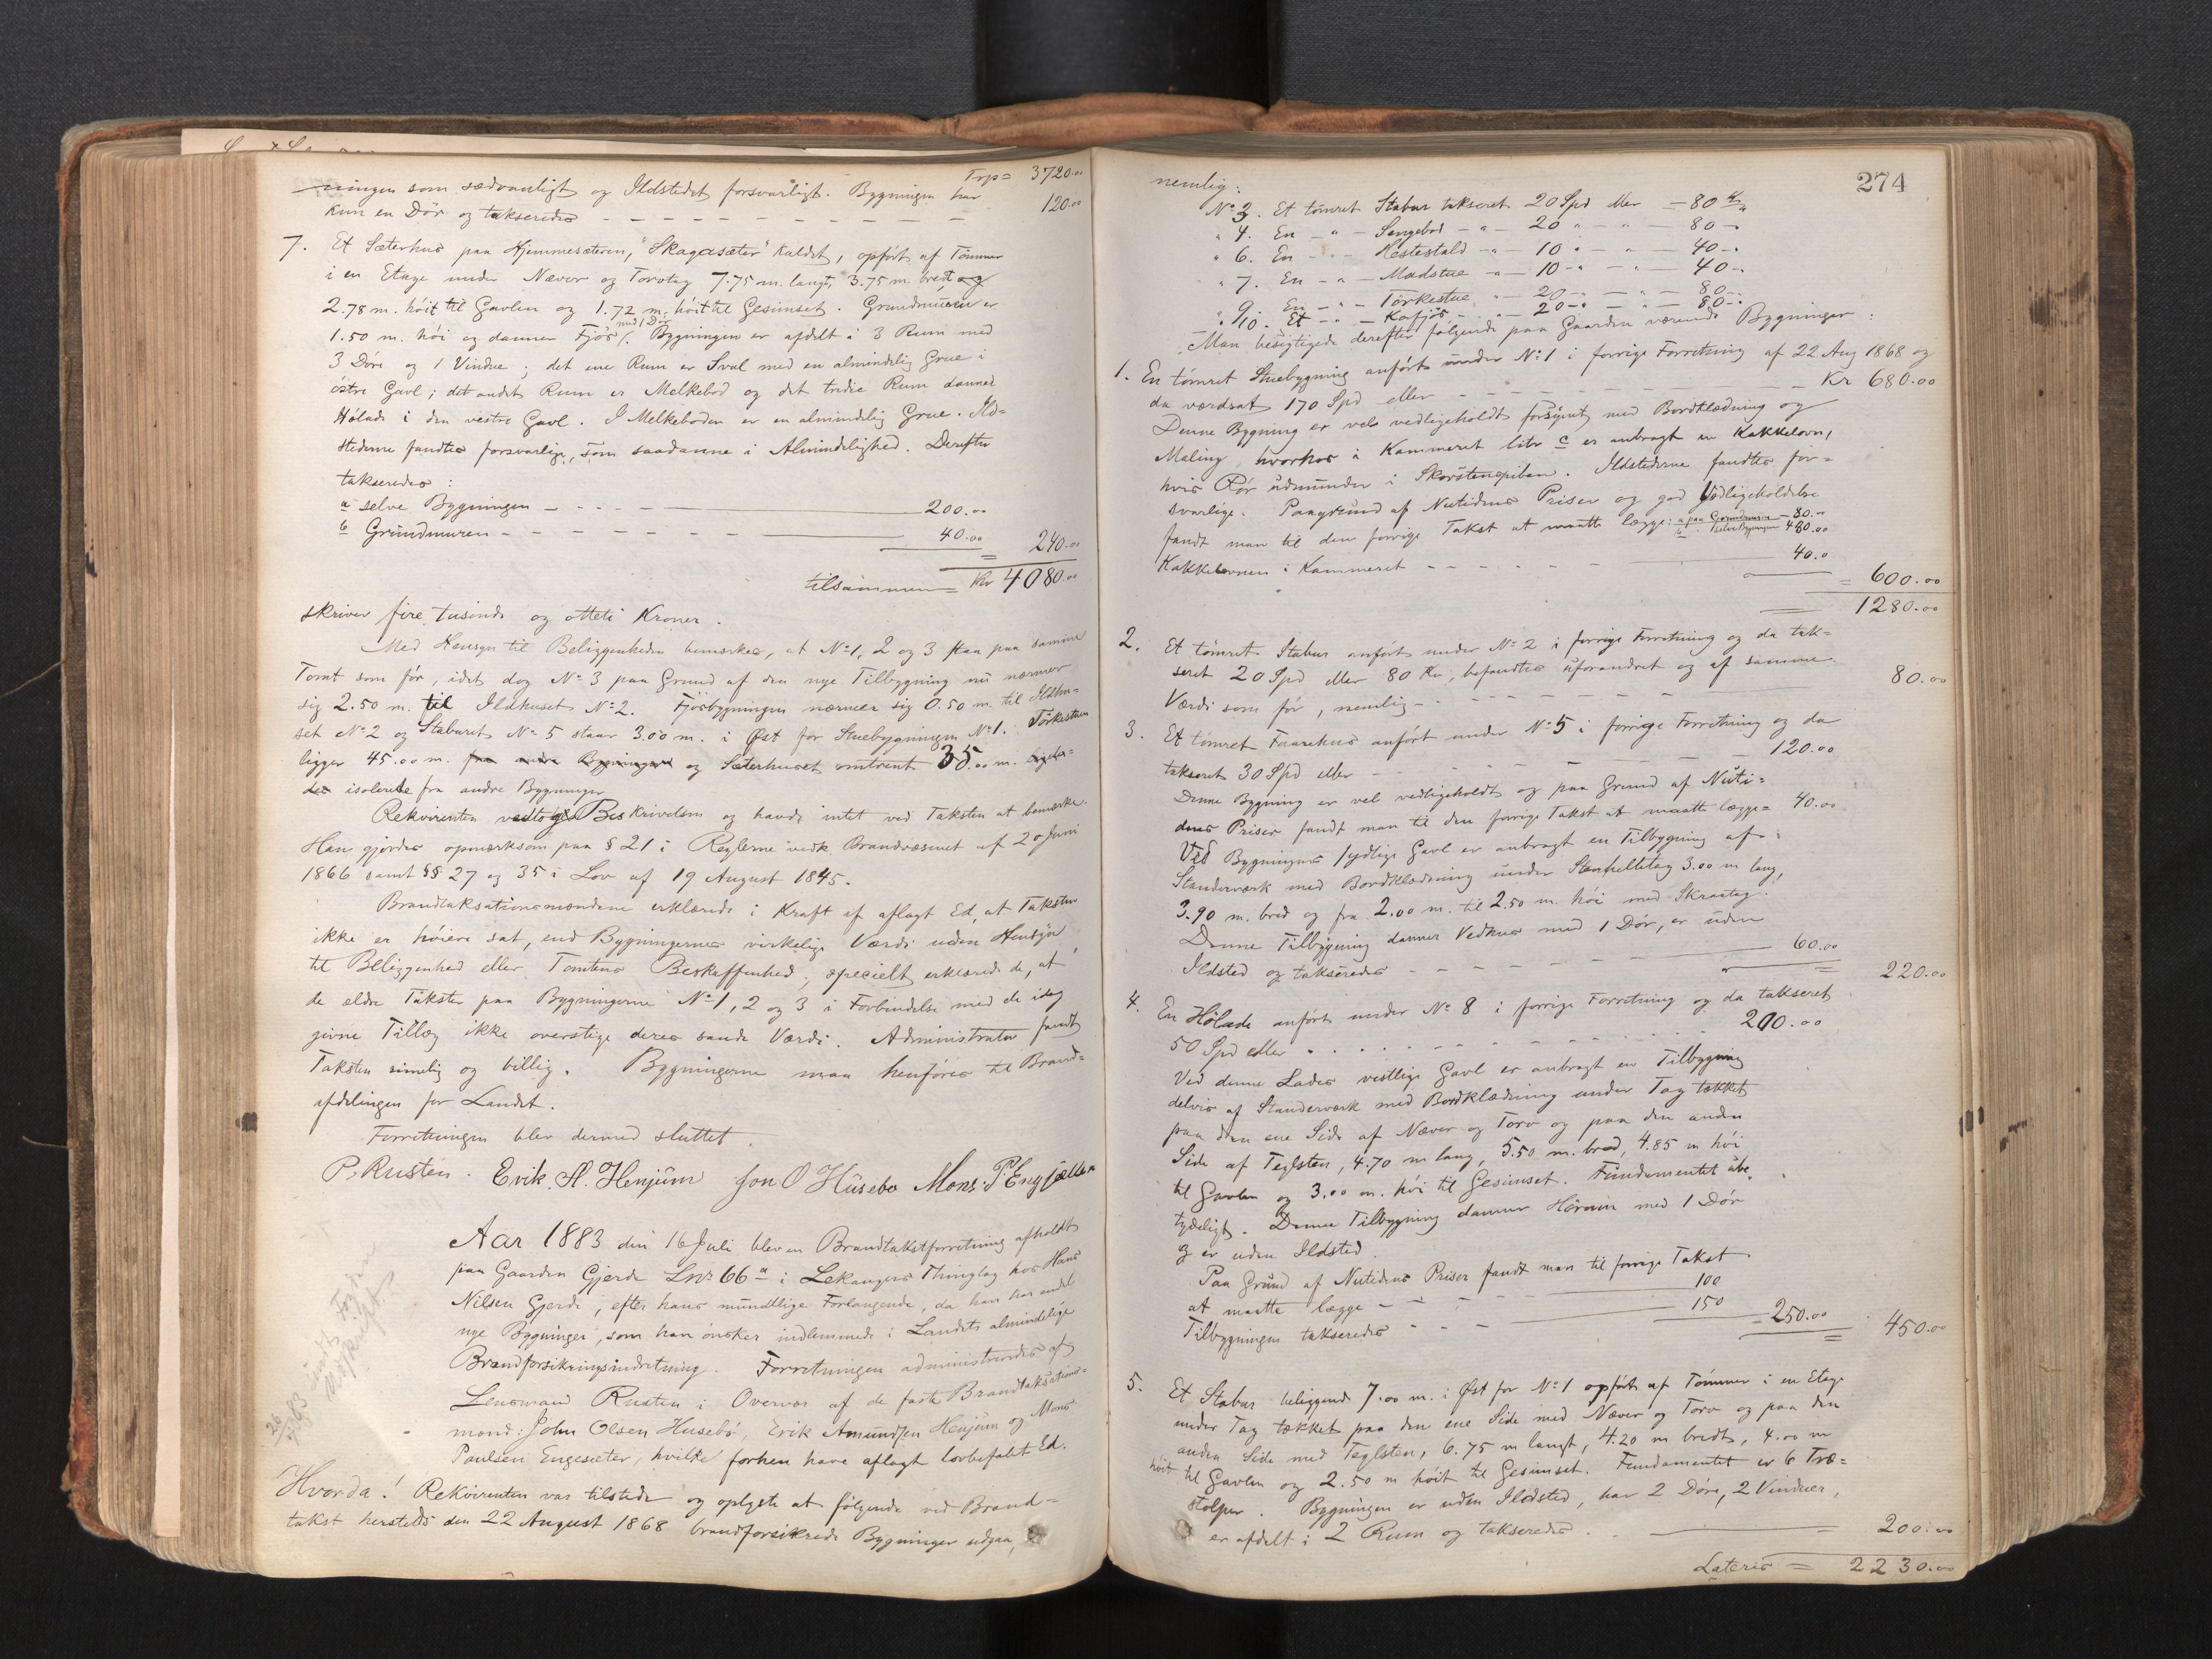 Trp = 3720.00
ningen som sædvanligt og Ildstedet forsvarligt. Bygningen har
kun en Dör og takseredes - - - - - - - - - - 120.00
7. Et Sæterhus paa Hjemmesæteren, "Skagasæter" kaldet, opfört af Tömmer
i en Etage under Næver og Torvtag 7.75 m. langt, 3.75 m. bredt og
2.78 m. höit til Gavlen og 1.72 m. höit til Gesimset. Grundmuren er
1.50 m. höi og danner Fjös med 1 Dör. Bygningen er afdelt i 3 Rum med
3 Döre og 1 Vindue; det ene Rum er Sval med en almindelig Grue i
östre Gavl; det andet Rum er Melkebod og det tredie Rum danner
Hölade i den vestre Gavl. I Melkeboden er en almindelig Grue. Ild=
stederne fandtes forsvarlige, som saadanne i Almindelighed. Derefter
takseredes:
a selve Bygningen - - - - 200.00
b Grundmuren - - - - - - - 40.00 = 240.00
tilsammen = Kr 4080.00
skriver fire tusinde og otteti Kroner.
Med Hensyn til Beliggenheden bemærkes, at No 1, 2 og 3 staa paa samme
Tomt som för, idet dog No 3 paa Grund af den nye Tilbygning nu nærmer
sig 2.50 m. til Ildhuset No 2. Fjösbygningen nærmer sig 0.50 m. til Ildhu=
set No 2 og Staburet No 5 staar 3.00 m. i Øst for Stuebygningen No 1. Törkestuen
ligger 45.00 m. fra andre Bygninger og Sæterhuset omtrent 35.00 m.
isolerede fra andre Bygninger
Rekvirenten vedtog Beskrivelsen og havde intet ved Taksten at bemærke.
Han gjordes opmærksom paa § 21 i Reglerne vedk. Brandvæsenet af 20 Juni
1866 samt §§ 27 og 35 i Lov af 19 August 1845.
Brandtaksationsmændene erklærede i Kraft af aflagt Ed, at Taksten
ikke er höiere sat, end Bygningernes virkelige Værdi uden Hensyn
til Beliggenhed eller Tomtens Beskaffenhed; specielt erklærede de, at
de ældre Takster paa Bygningerne No 1, 2 og 3 i Forbindelse med de idag
givne Tillæg ikke overstige deres sande Værdi. Administrator fandt
Taksten rimelig og billig. Bygningerne maa henföres til Brand=
afdelingen for Landet.
Forretningen blev dermed sluttet.
P. Rusten. Erik A. Henjum Jon O Husebø Mons P. Engesæter
Aar 1883 den 16 Juli blev en Brandtakstforretning afholdt
paa Gaarden Gjerde Lnr 66 a i Lekangers Thinglag hos Hans
Nilsen Gjerde, efter hans mundtlige Forlangende, da han har endel
nye Bygninger, som han önsker indlemmede i Landets almindelige
Brandforsikringsindretning. Forretningen administreredes af
Lensmand Rusten i Overvær af de faste Brandtaksations=
mænd: John Olsen Husebö, Erik Amundsen Henjum og Mons
Paulsen Engesæter, hvilke forhen have aflagt lovbefalet Ed.
Hvorda! Rekvirenten var tilstede og oplyste at fölgende ved Brand=
takst herstedes den 22 August 1868 brandforsikrede Bygninger udgaa,
26/7 83 sendt Fogden Udskrift
274
nemlig:
No 3. Et tömret Stabur takseret 20 Spd eller - 80 Kr
" 4. En - " - Sengebod - " - 20 " - " - 80 -
" 6. En - " - Hestestald - " - 10 " - " - 40 -
" 7. En - " - Madstue - " - 10 - " - " - 40 -
" 9. En - " - Törkestue " - 20 - " - 80 -
" 10. Et - " - Kafjös - " - 20 - " - 80 -
Man besigtigede derefter fölgende paa Gaarden værende Bygninger:
1. En tömret Stuebygning anfört under No 1 i forrige Forretning af 22 Aug 1868 og
da værdsat 170 Spd eller - - - - - - Kr 680.00
Denne Bygning er vel vedligeholdt forsynet med Bordklædning og
Maling, hvorhos i Kammeret litr c er anbragt en Kakkelovn,
hvis Rör udmunder i Skorstenspiben. Ildstederne fandtes for=
svarlige. Paagrund af Nutidens Priser og god Vedligeholdelse
fandt man til den forrige Takst at maatte lægge: a paa Grundmuren - 80.00
b " selve Bygningen 480.00
Kakkelovnen i Kammeret - - - - - 40.0
= 600.00
1280.00
2. Et tömret Stabur anfört under No 2 i forrige Forretning og da tak=
seret 20 Spd eller 80 Kr, befandtes uforandret og af samme
Værdi som för, nemlig - - - - - 80.00
3. Et tömret Faarehus anfört under No 5 i forrige Forretning og da
takseret 30 Spd eller - - - - - 120.00
Denne Bygning er vel vedligeholdt og paa Grund af Nuti=
dens Priser fandt man til den forrige Takst at maatte lægge = 40.00
Ved Bygningens sydlige Gavl er anbragt en Tilbygning af
Standerværk med Bordklædning under Stenheltetag 3.00 m lang,
3.90 m. bred og fra 2.00 m. til 2.50 m. höi med Skraatag.
Denne Tilbygning danner Vedhus med 1 Dör, er uden
Ildsted og takseredes - - - - - 60.00
= 220.00
4. En Hölade anfört under No 8 i forrige Forretning og da takseret
50 Spd eller - - - - - 200.00
Ved denne Lades vestlige Gavl er anbragt en Tilbygning
delvis af Standerværk med Bordklædning under Tag tækket
paa den ene Side af Næver og Torv og paa den anden
Side af Teglsten, 4.70 m lang, 5.50 m. bred, 4.85 m höi
til Gavlen og 3.00 m. höi til Gesimset. Fundamentet ube=
tydeligt. Denne Tilbygning danner Hörum med 1 Dör
og er uden Ildsted.
Paa Grund af Nutidens Priser fandt man til forrige Takst
at maatte lægge - - - - 100
Tilbygningen takseredes - - - 150 = 250.00
= 450.00
5. Et Stabur beliggende 7.00 m. i Øst for No 1 opfört af Tömmer i en Etage
under Tag tækket paa den ene Side med Næver og Torv og paa den
anden Side med Teglsten, 6.75 m langt, 4.20 m bredt, 4.00 m
höit til Gavlen og 2.50 m höit til Gesimset. Fundamentet er 6 Træ=
stolper. Bygningen er uden Ildsted, har 2 Döre, 2 Vinduer,
er afdelt i 2 Rum og takseredes - - 200.00
Lateris = 2230.00